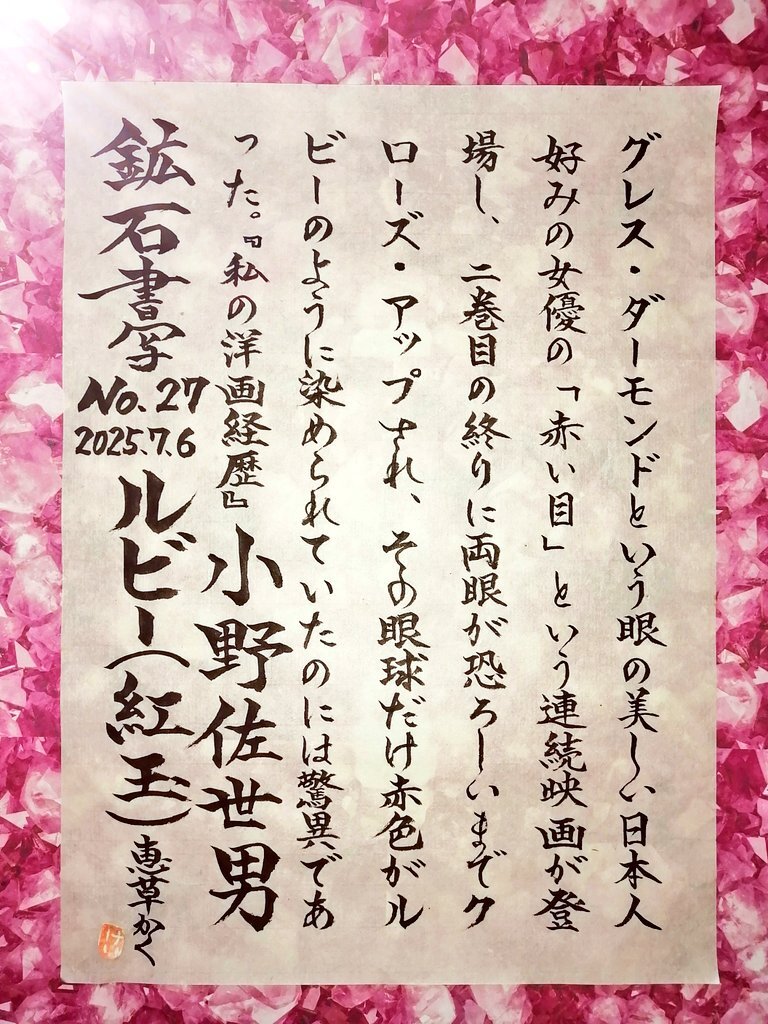 グレス・ダーモンドという眼の美しい日本人
好みの女優の「赤い目」という連続映画が登
場し、二巻目の終りに両眼が恐ろしいまでク
ローズ・アップされ、その眼球だけ赤色がル
ビーのように染められていたのには驚異であ
った。『私の洋画経歴』小野佐世男
鉱石書写 No.27 2025.7.6 ルビー(紅玉) 恵草かく